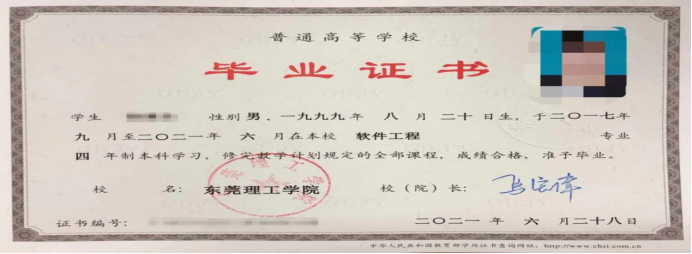 普通高等学校
毕业证书
学生 性别 男，一九九九年 八 月 二十 日生，于二〇一七年
九 月至二〇二一年 六 月在本校 软件工程 专业
四 年制本科学习，修完教学计划规定的全部课程，成绩合格，准予毕业。
校 名：东莞理工学院 校（院）长：
证书编号： 二〇二一年 六 月二十八日
中华人民共和国教育部学历证书查询网址：http://www.chsi.com.cn